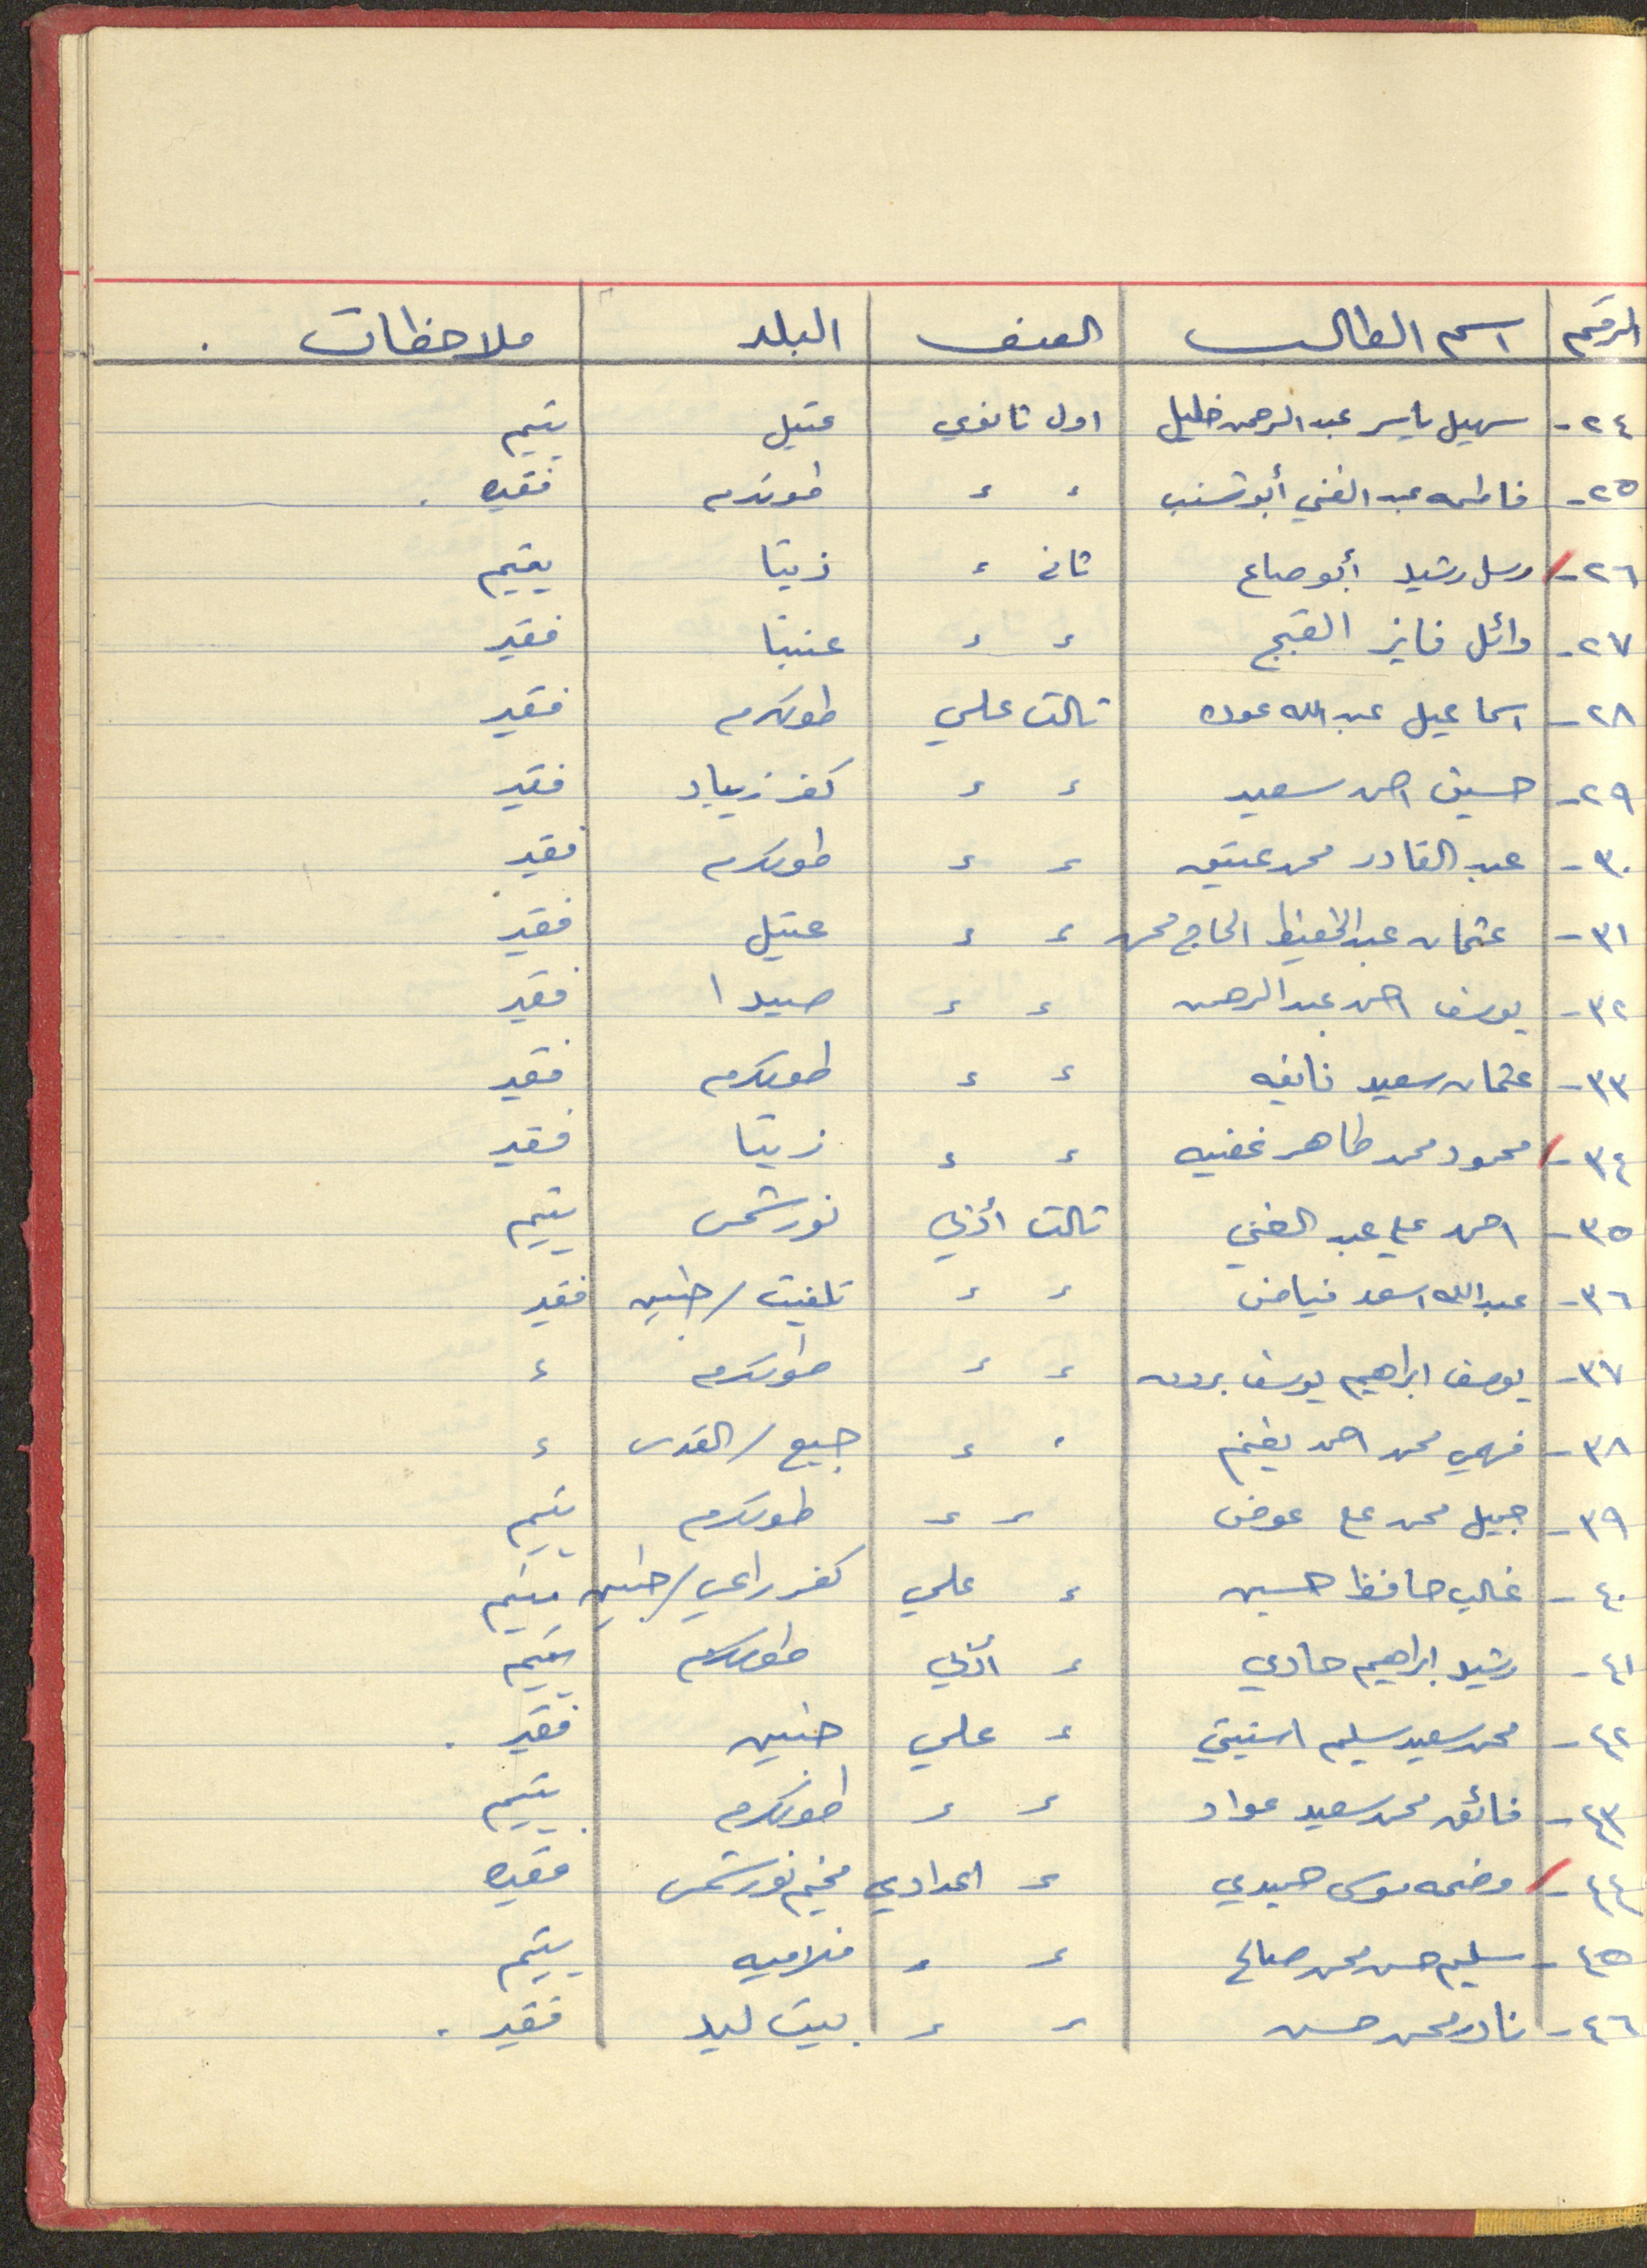 الرقم اسم الطالب الصف البلد ملاحظات .
٢٤- سهيل ياسر عبد الرحمن خليل اول ثانوي عتيل يتيم
٢٥- فاطمه عبد الغني أبو شنب ء ء طولكرم فقيره .
٢٦- رشيد أبو صاع ثاني ء زيتا يتيم
٢٧- وائل فايز القبج ء ء عنبتا فقير
٢٨- اسماعيل عبد الله عوده ثالث علمي طولكرم فقير
٢٩- حسين احمد سعيد ء ء كفر زيباد فقير
٣٠- عبد القادر محمد عتيق ء ء طولكرم فقير
٣١- عثمان عبد الحفيظ الحاج محمد ء ء عتيل فقير
٣٢- يوسف احمد عبد الرحمن ء ء صيدا فقير
٣٣- عثمان سعيد نايفه ء ء طولكرم فقير
٣٤- محمود محمد طاهر ء ء زيتا فقير
٣٥- احمد علي عبد الغني ثالث أدبي نور شمس يتيم
٣٦- عبد الله اسعد فياض ء ء تلفيت / جنين فقير
٣٧- يوسف ابراهيم يوسف ء ء طولكرم ء
٣٨- فهمي محمد احمد ء ء جبع / القدس ء
٣٩- جميل محمد علي عوض ء ء طولكرم يتيم
٤٠- غالب حافظ حسين ء علمي كفر راعي / جنين يتيم
٤١- رشيد ابراهيم حمادي ء أدبي طولكرم يتيم
٤٢- محمد سعيد سليم استيتي ء علمي جنين فقير .
٤٣- فائق محمد سعيد عواد ء ء طولكرم يتيم
٤٤- وضحه موسى حميدي ء اعدادي مخيم نور شمس فقيره
٤٥- سليم حسن محمد صالح ء ء فلاميه يتيم
٤٦- نادر محمد حسن ء ء بيت ليد فقير .